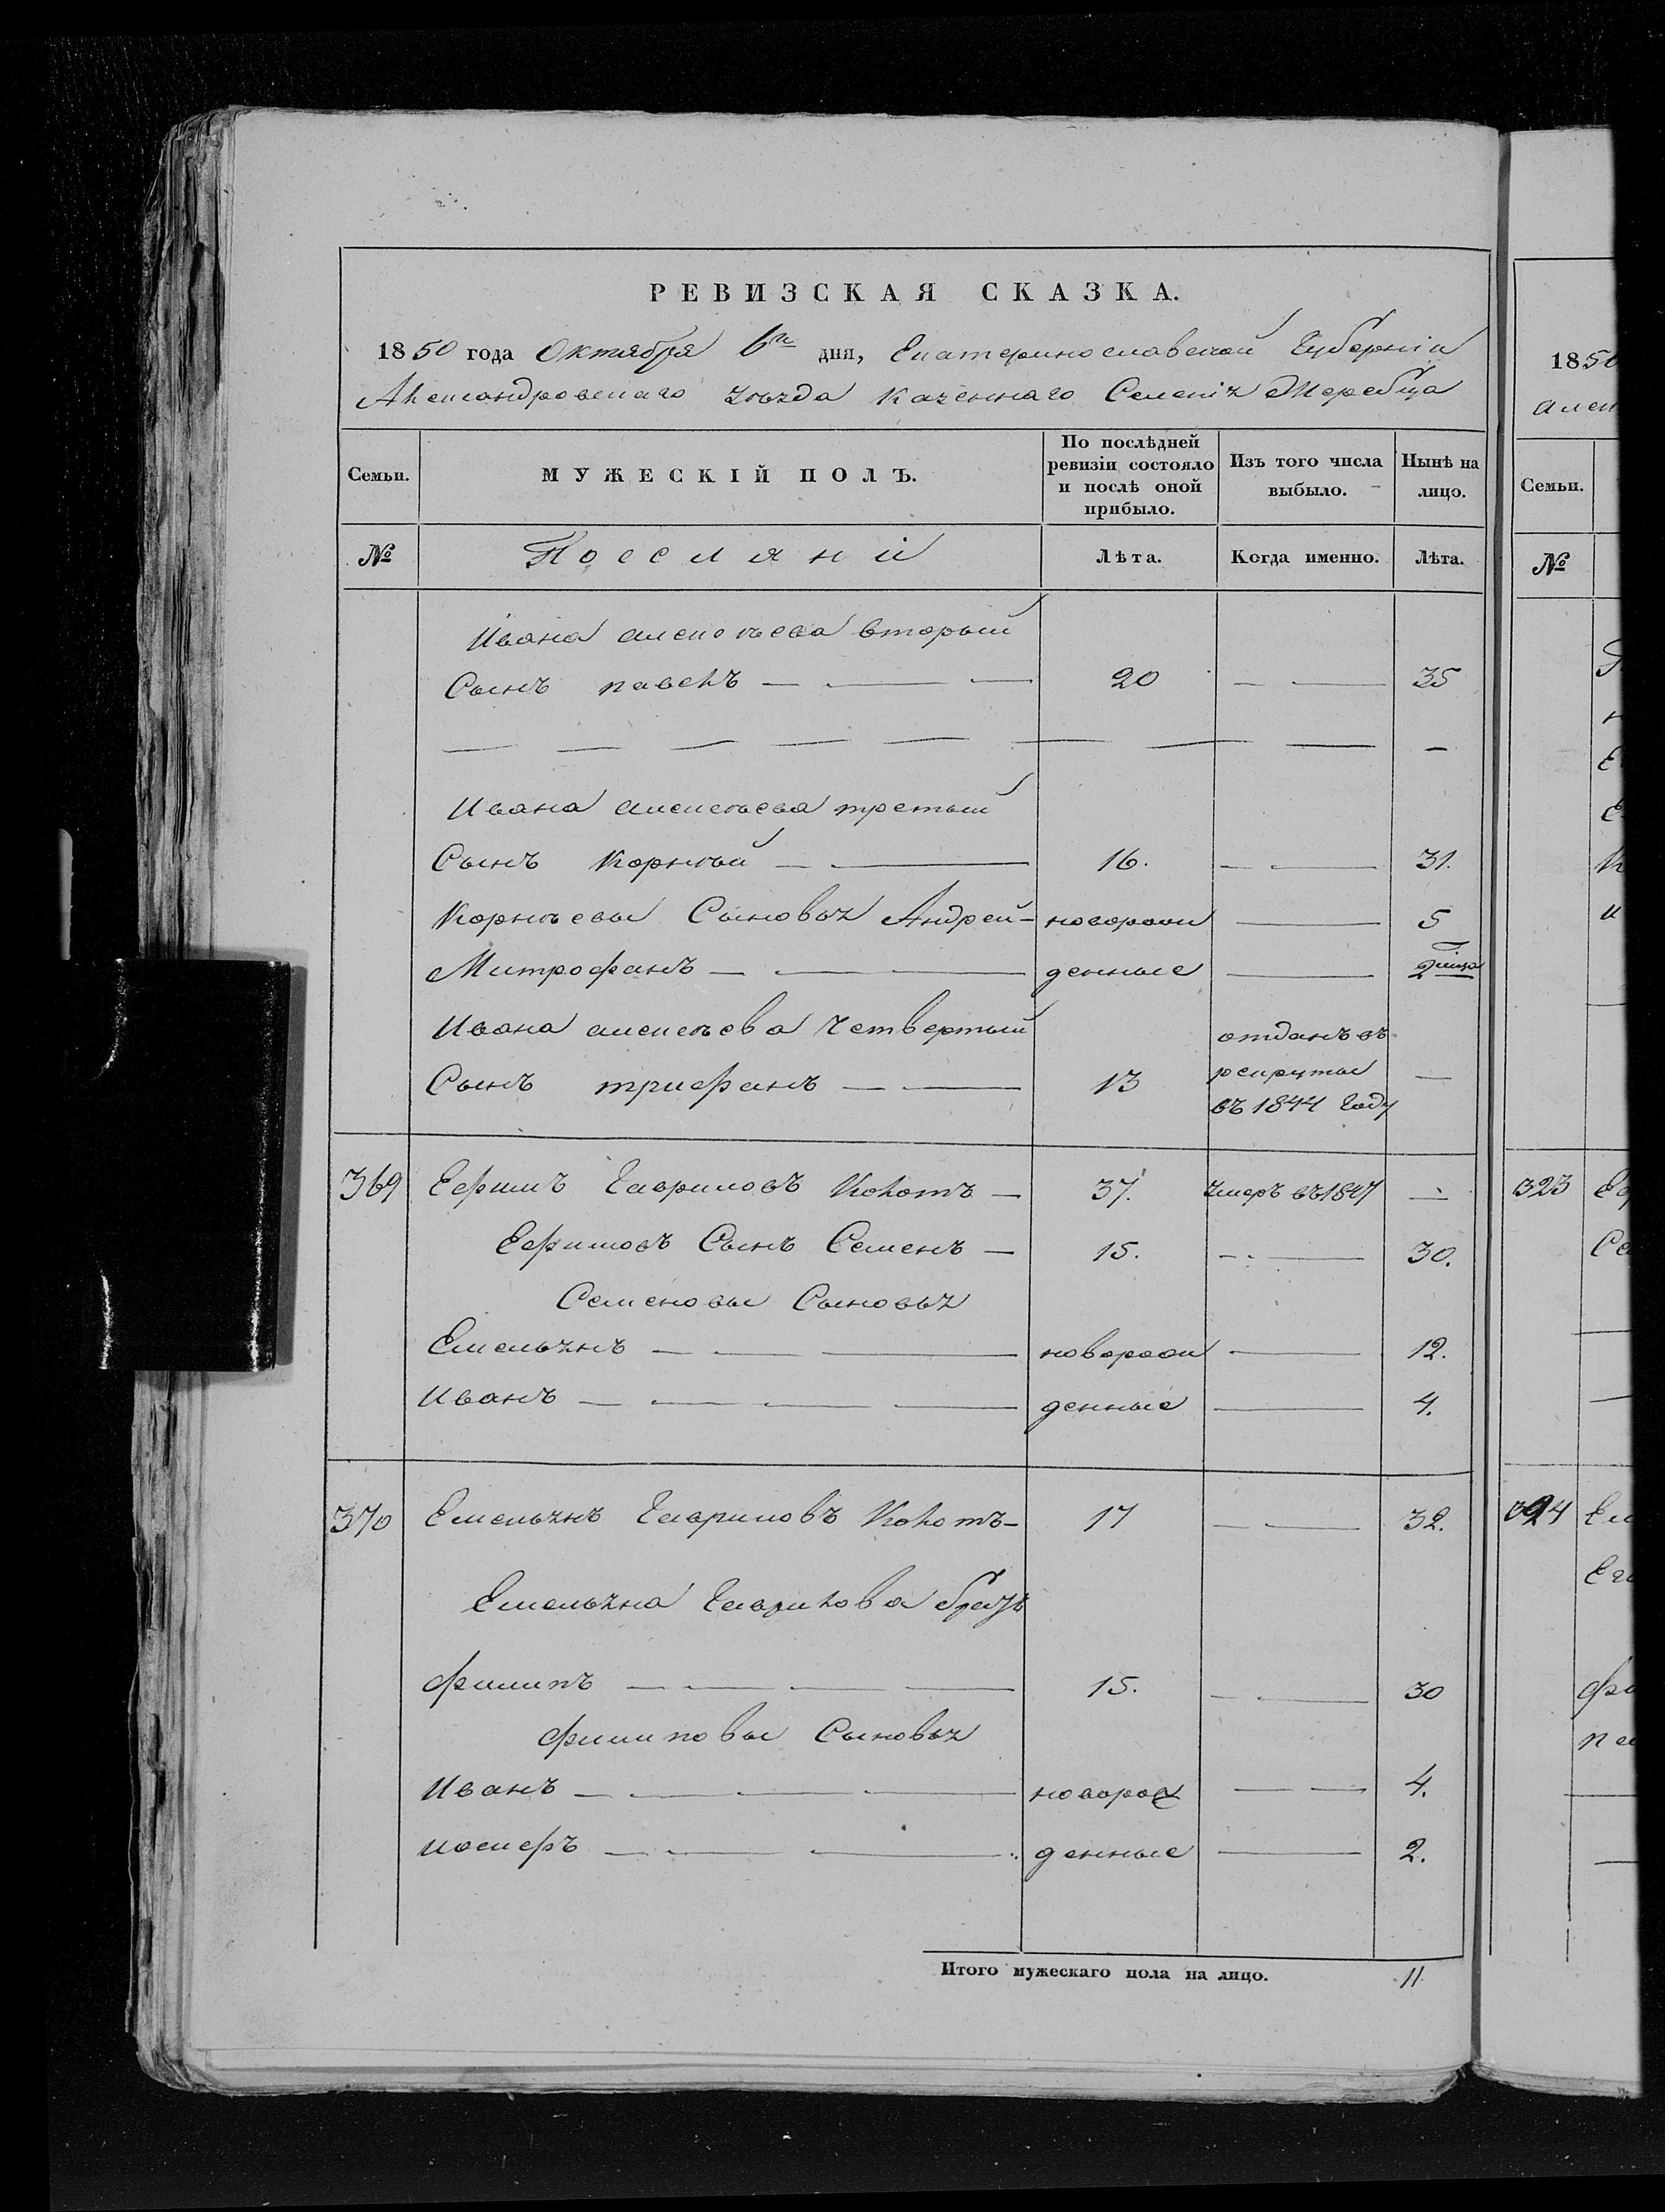 РЕВИЗСКАЯ СКАЗКА.
1850 года Октября 6го дня, Екатеринославской Губерніи
Александровскаго уѣзда казеннаго Селенія Жеребца
Семьи. МУЖЕСКІЙ ПОЛЪ. По послѣдней ревизіи состояло и послѣ оной прибыло. Изъ того числа выбыло. Нынѣ на лицо.
№ Поселяни Лѣта. Когда именно. Лѣта.
Ивана алексѣева вторый
Сынъ павелъ 20 35
Ивана алексѣева третый
Сынъ Корнѣй 16. 31.
Корнѣевы Сыновья Андрей новорож 5
Митрофанъ денные
Ивана алексѣева Четвертый
Сынъ трифанъ 13 отданъ въ рекруты въ 1844 Году
369 Ефимъ Гавриловъ Кокотъ 37. Умеръ въ 1847
Ефимовъ Сынъ Семенъ 15. 30.
Семеновы Сыновья
Емельянъ новорож 12.
Иванъ денные 4.
370 Емельянъ Гавриловъ Кокотъ 17 32.
Емельяна Гаврилова братъ
филипъ 15. 30
филиповы Сыновья
Иванъ новорож 4.
иосифъ денные 2.
Итого мужескаго пола на лицо. 11.
1850
алек
Семьи.
№
323
Се
324